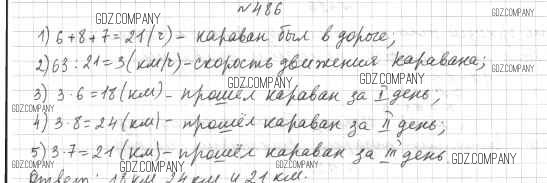 №486
GDZ.COMPANY GDZ.COMPANY
1) 6+8+7=21(г) – караван был в дороге;
2) 63:21=3(км/г)-скорость движения каравана;
GDZ.COMPANY GDZ.COMPANY
3) 3·6=18(км) - прошёл караван за I день;
GDZ.COMPANY
4) 3·8=24(км) - прошёл караван за II день;
GDZ.COMPANY
5) 3·7=21(км)- прошёл караван за III день.
GDZ.COMPANY GDZ.COMPANY GDZ.COMPANY GDZ.COMPANY
Ответ: 18 км, 24 км и 21 км.